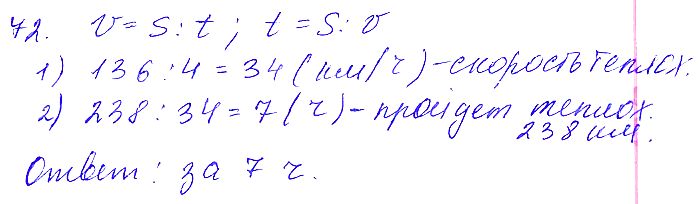 72. v = S : t ; t = S : v
1) 136 : 4 = 34 (км/ч) – скорость теплох.
2) 238 : 34 = 7 (ч) – пройдет теплох.
238 км.
Ответ: за 7 ч.